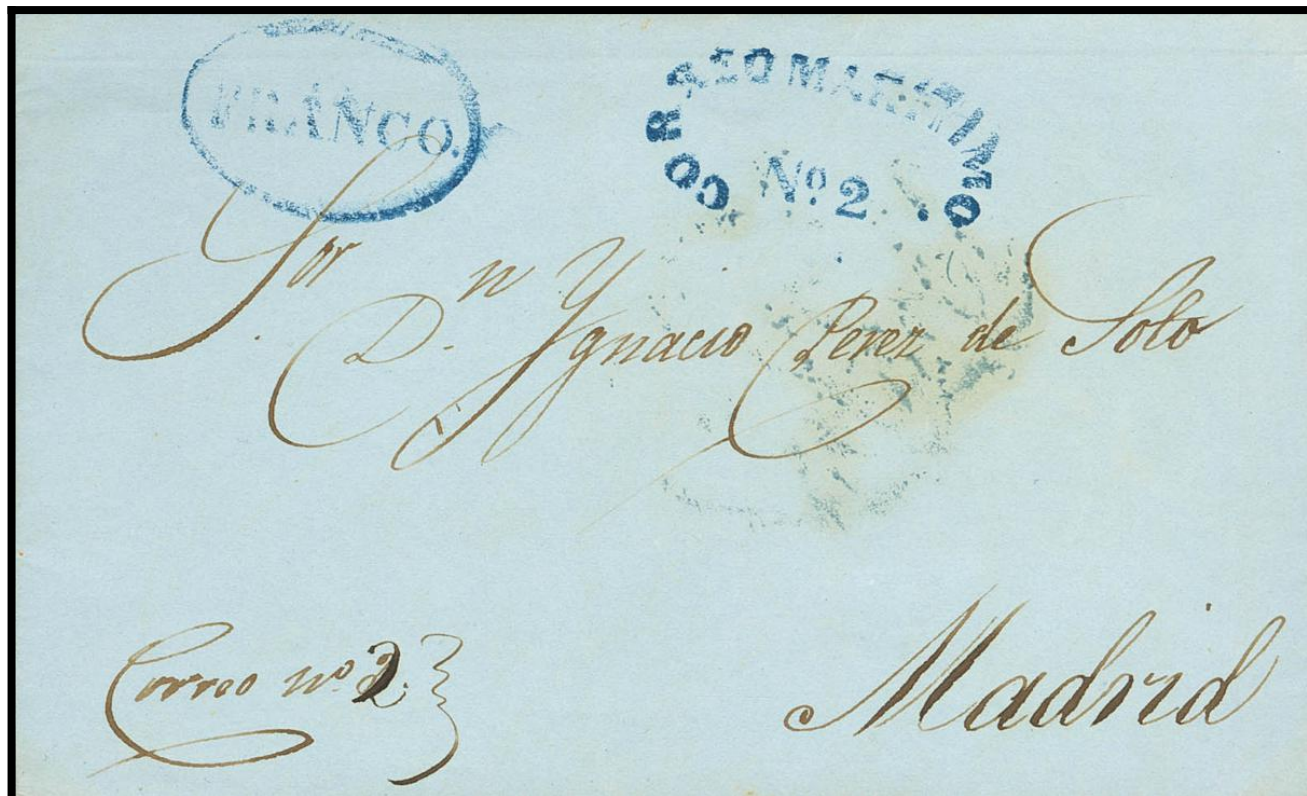 FRANCO.
CORREO MARITIMO.
Nº. 2
Sor
D.n Ygnacio Perez de Soto
Correo nº 2.
Madrid